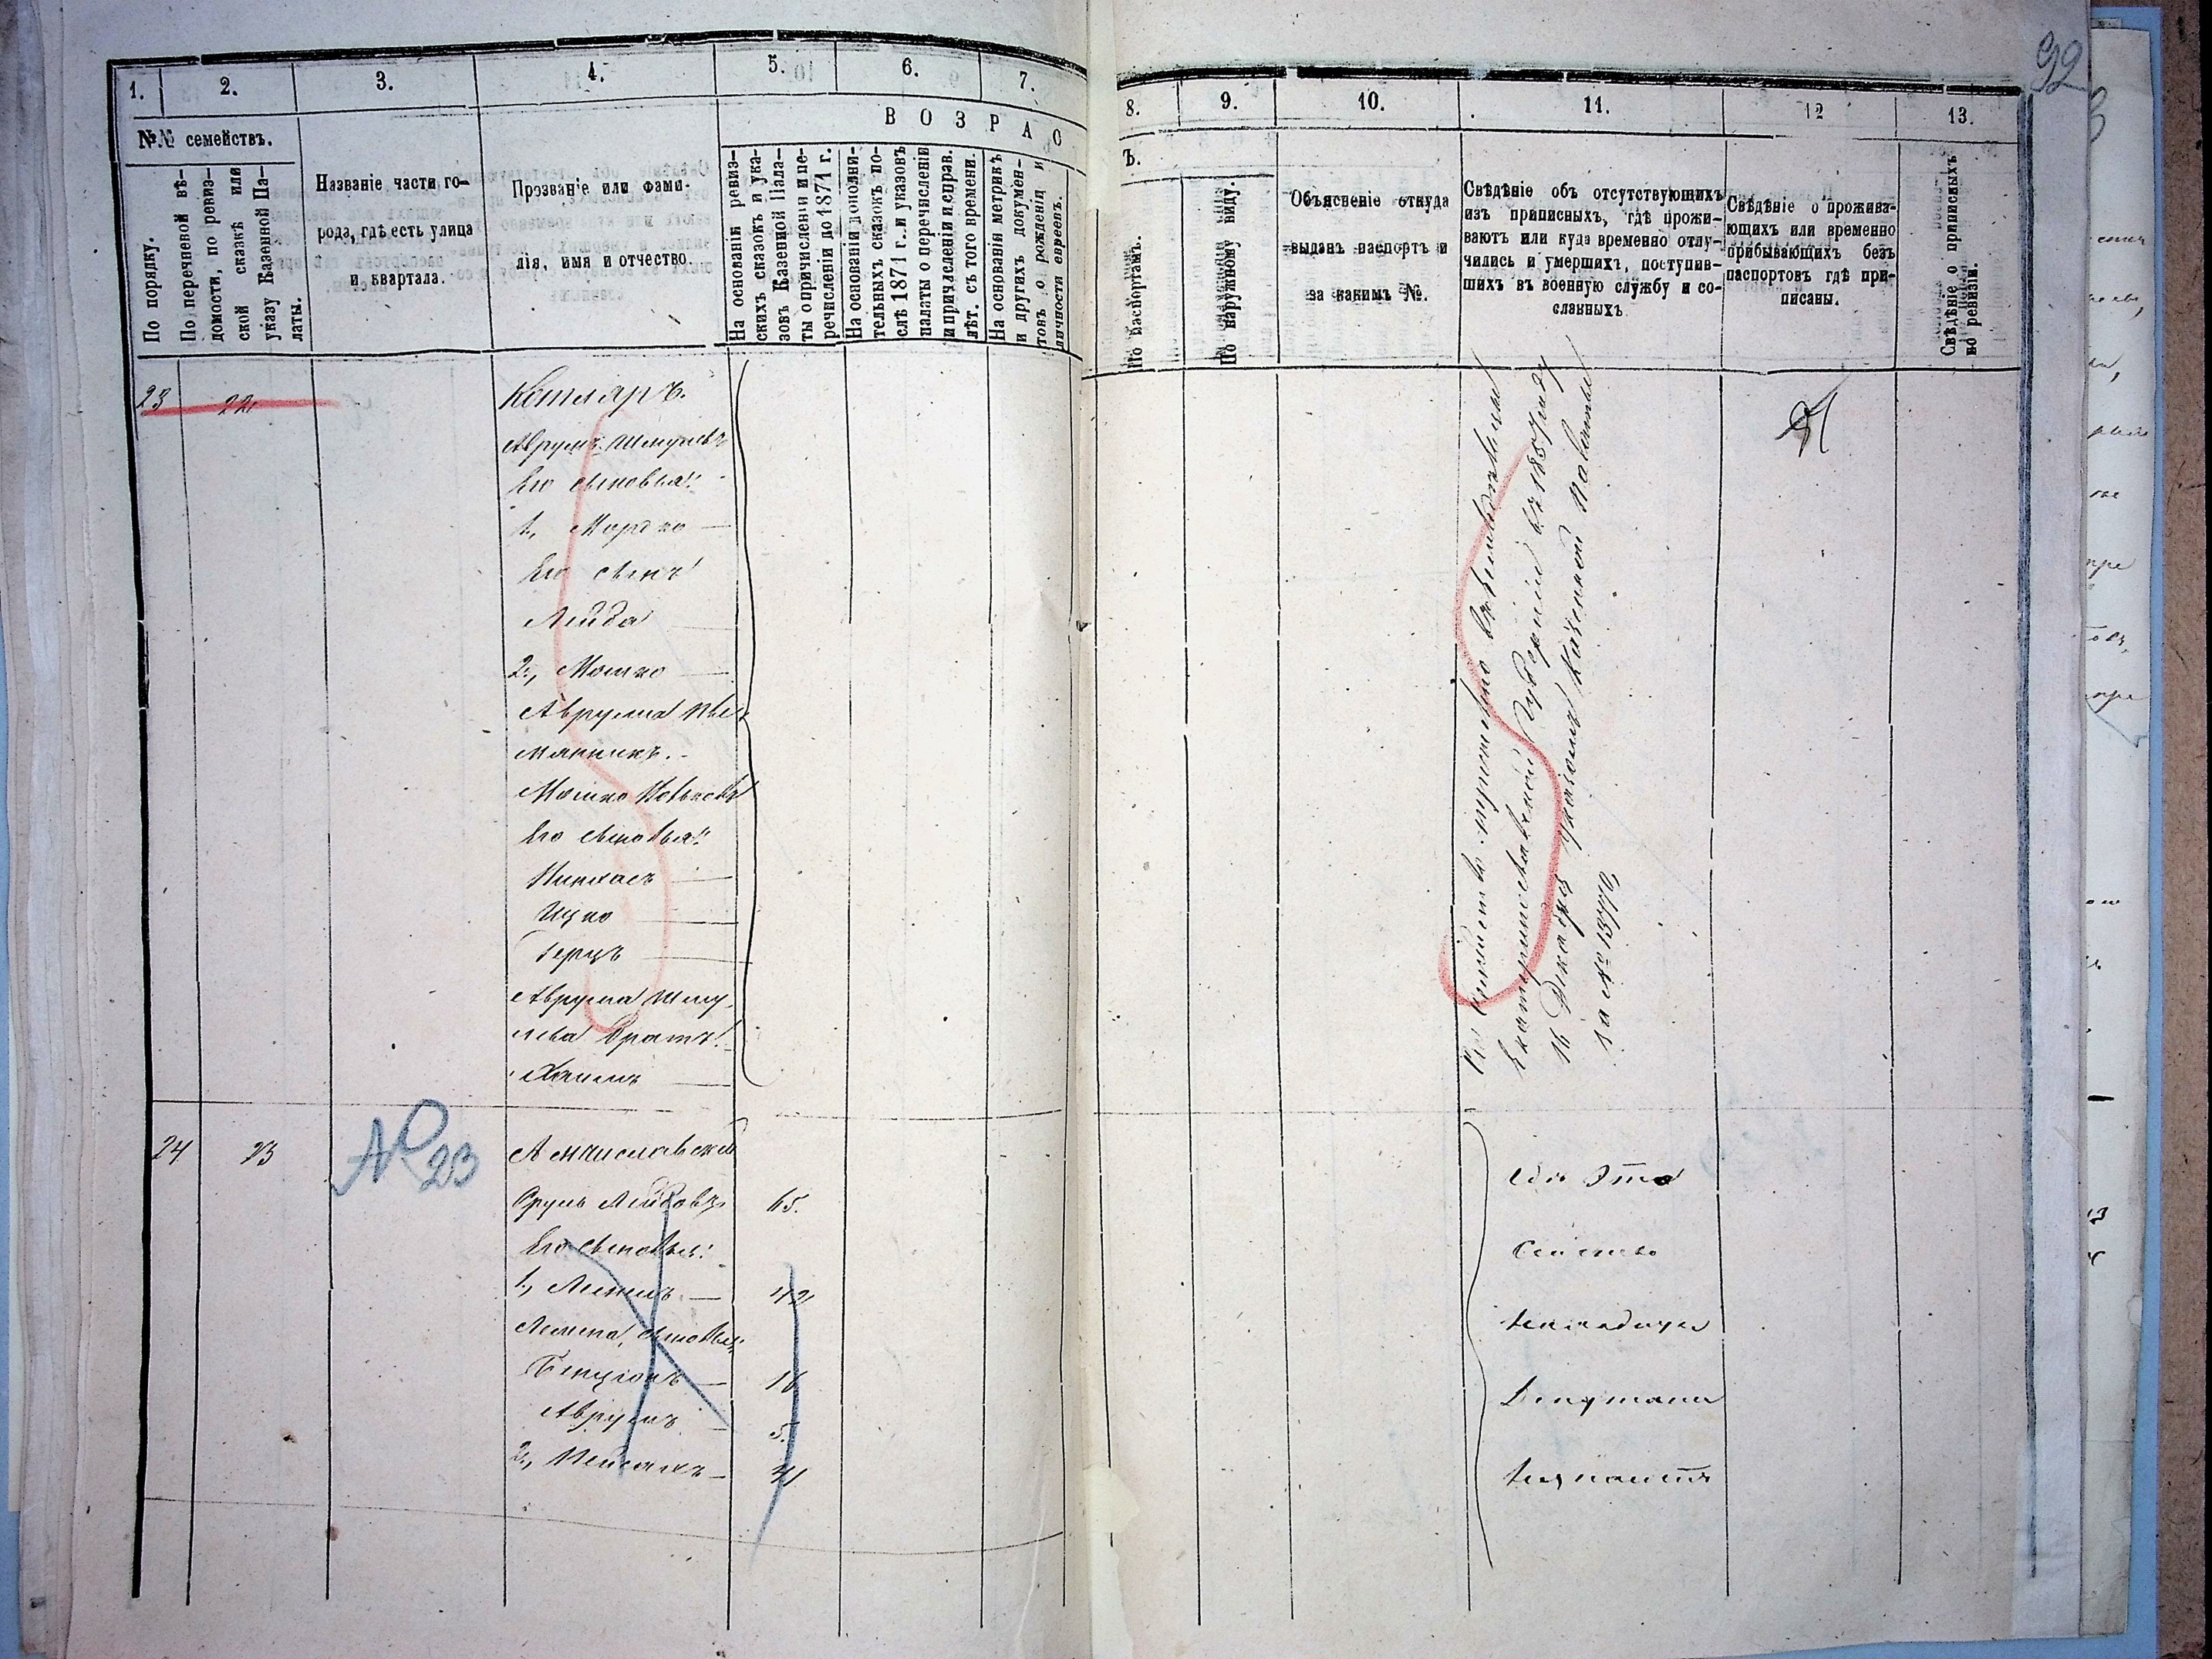 92
1.
2.
3.
4.
5.
6.
7.
8.
9.
10.
11.
12
13.
№№ семействъ.
По порядку.
По перечневой вѣ-
домости, по ревиз-
ской сказкѣ или
указу Казенной Па-
латы.
Названіе части го-
рода, гдѣ есть улица
и квартала.
Прозваніе или фами-
лія, имя и отчество.
ВОЗРАС
На основаніи ревиз-
скихъ сказокъ и ука-
зовъ Казенной Пала-
ты о причисленіи и пе-
речисленіи до 1871 г.
На основаніи дополни-
тельныхъ сказокъ по-
слѣ 1871 г. и указовъ
палаты о перечисленіи
и причисленіи и справ.
лѣт. съ того времени.
На основаніи метрикъ
и другихъ докумен-
товъ о рожденіи и
личности евреевъ.
Ъ.
По паспортамъ.
По наружному виду.
Объясненіе откуда
выданъ паспортъ и
за какимъ №.
Свѣдѣніе объ отсутствующихъ
изъ приписныхъ, гдѣ прожи-
ваютъ или куда временно отлу-
чились и умершихъ, поступив-
шихъ въ военную службу и со-
сланныхъ
Свѣдѣніе о прожива-
ющихъ или временно
прибывающихъ безъ
паспортовъ гдѣ при-
писаны.
Свѣдѣніе о приписныхъ
по ревизіи.
23 22
Котляръ.
Аврумъ Шмулевъ
Его сыновья:
1., Мордко —
Его сынъ
Лейба
2., Мошко —
Аврума пле-
мянникъ.
Мошко
Его сыновья:
Пинхасъ —
Ицко —
Герцъ —
Аврума Шму-
лева братъ:
Хаимъ —
Екатеринославской Губерніи въ 1857 году
16 Декабря указомъ Казенной Палаты
за № 13770,
24 23
№ 23
Срулъ Лейбовъ 65.
Его сыновья:
1., —  42
сыновья:
Бенціонъ — 16
Аврумъ 5.
2., Пейсахъ — 41
Гдѣ это
семейство
находится